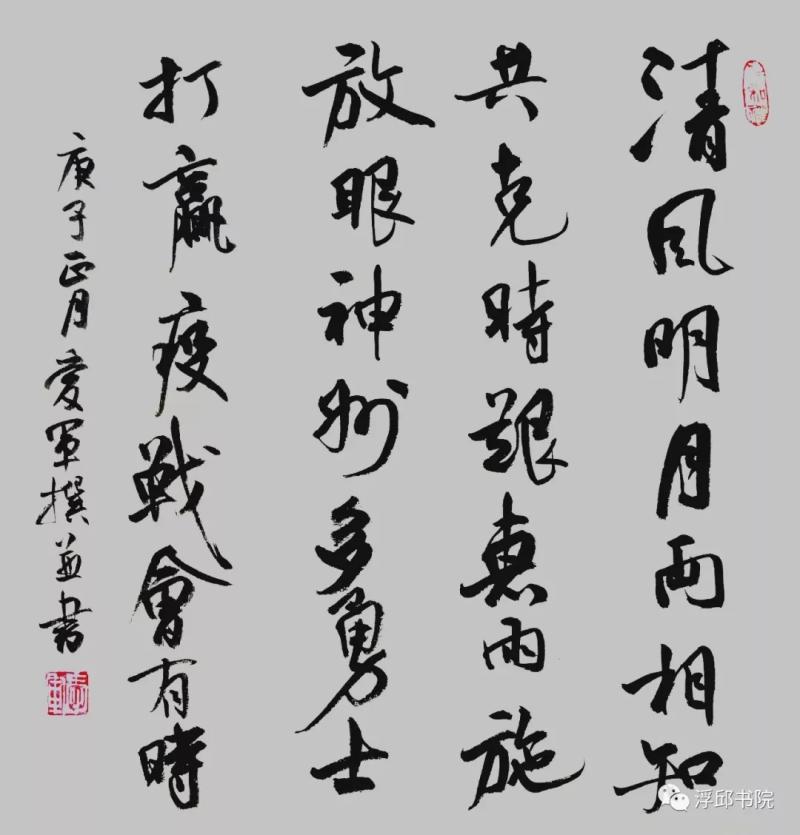 清風明月兩相知
共克時艱惠雨施
放眼神州多勇士
打贏疫戰會有時
庚子正月愛軍撰並書
浮邱书院